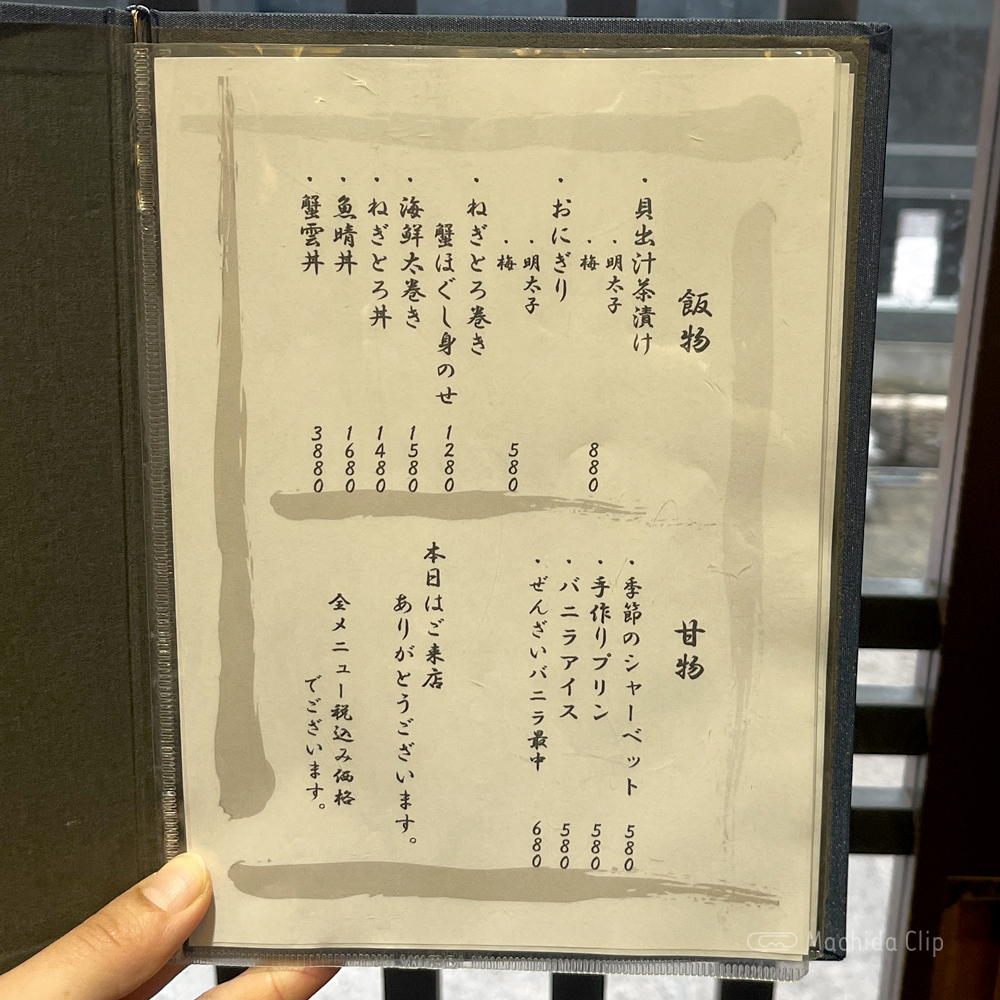 飯物
・貝出汁茶漬け
・明太子
・梅
880
・おにぎり
・明太子
・梅
580
・ねぎとろ巻き
蟹ほぐし身のせ
1280
・海鮮太巻き
1580
・ねぎとろ丼
1480
・魚晴丼
1680
・蟹雲丼
3880
甘物
・季節のシャーベット
580
・手作りプリン
580
・バニラアイス
580
・ぜんざいバニラ最中
680
本日はご来店
ありがとうございます。
全メニュー税込み価格
でございます。
Machida Clip